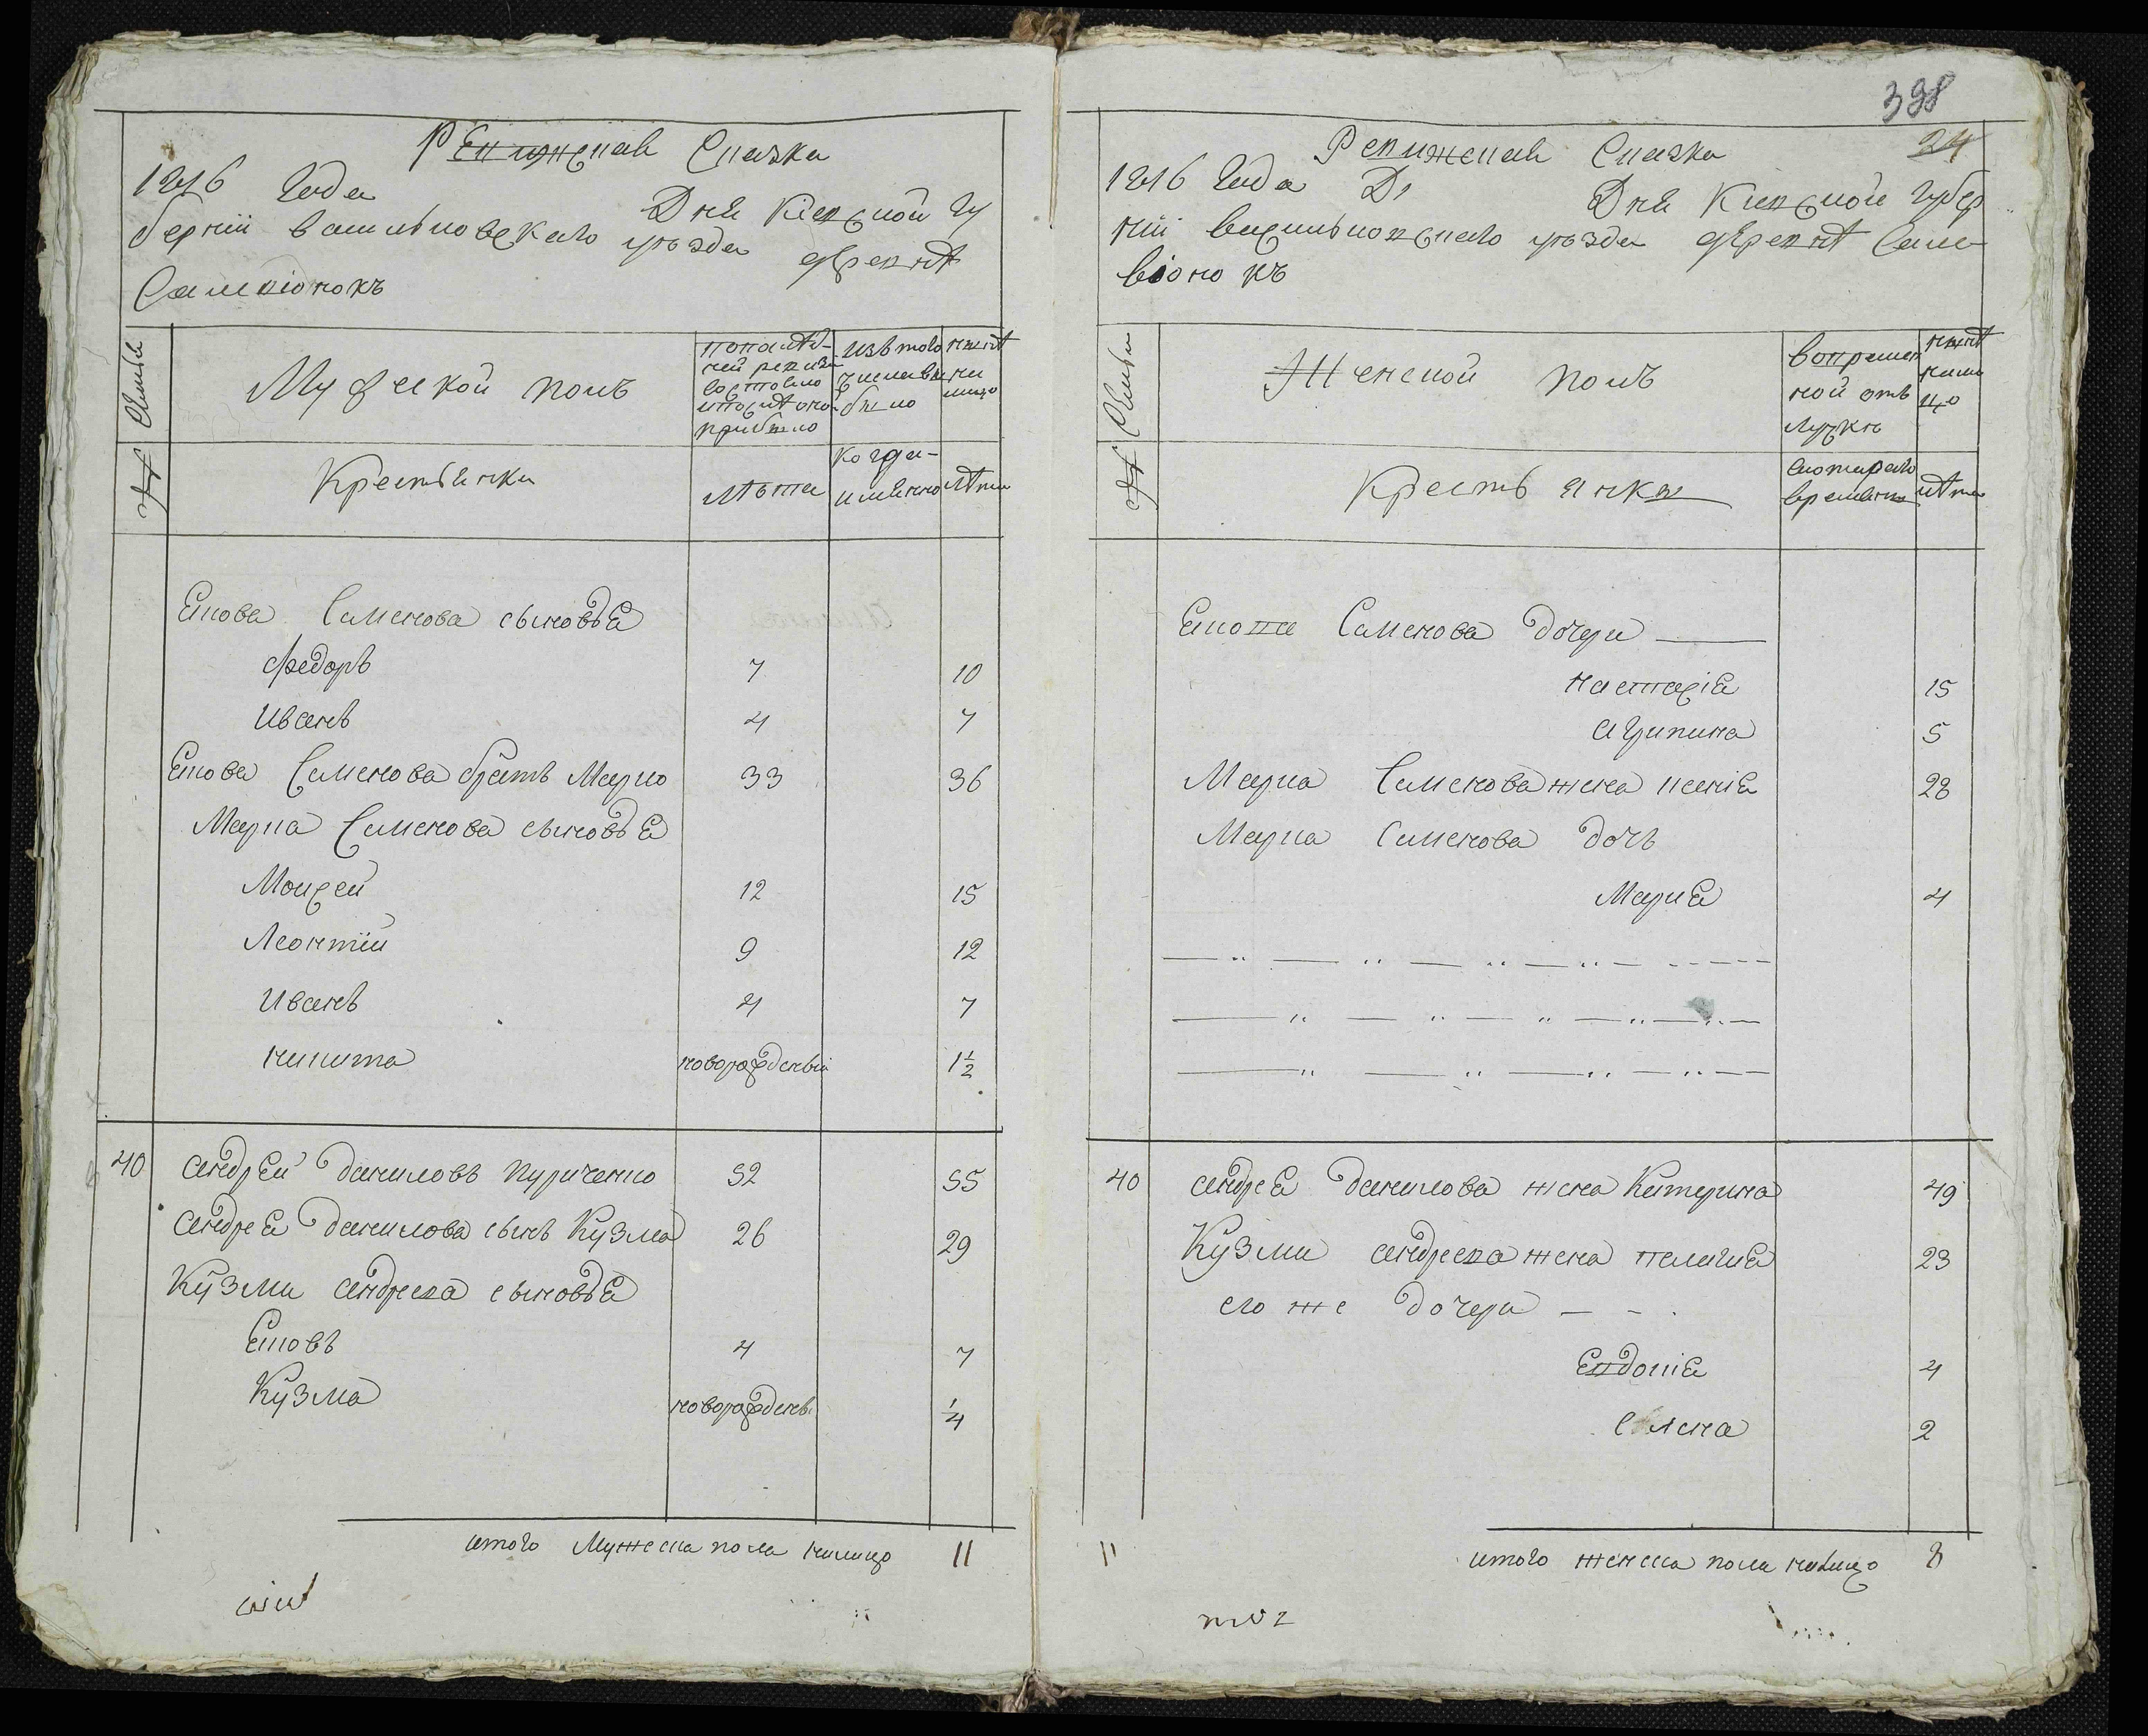 398
24
Ревижская Сказка
1816 Года Дня Киевской Гу
берніи васильковскаго уезда деревни
Саливіонокъ
Семьи
Мужеской полъ
попослед-
ней ревизіи
состояло
и после оной
прибыло
изътого
числавы
было
ныне
на
лицо
№
Крестьянки
лѣта
когда-
имянно
лѣта
Якова Семенова сыновья
Федоръ 7 10
Иванъ 4 7
Якова Семенова братъ Марко 33 36
Марка Семенова сыновья
Моисей 12 15
Леонтій 9 12
Иванъ 4 7
никита новорожденый 1½
40 андрей даниловъ Куриченко 52 55
андрея данилова сынъ Кузма 26 29
Кузми андреева сыновья
Яковъ 4 7
Кузма новорожденый ¼
итого Мужеска пола налицо 11
Ревижская Сказка
1816 Года Дня Киевской Губер
ніи василковскаго уезда деревни Сали
віонокъ
Семьи
Женской полъ
вовремен
ной отъ
лучке
ныне
нали
цо
№
Крестьянки
скотораго
времени
лѣта
Якова Семенова дочери
настасія 15
агрипина 5
Марка Семенова жена ксенія 28
Марка Семенова дочь
Марія 4
40 андрея данилова жена Катерина 49
Кузми андреева жена пелагия 23
его же дочери
Евдокія 4
Елена 2
11 итого женска пола налицо 8